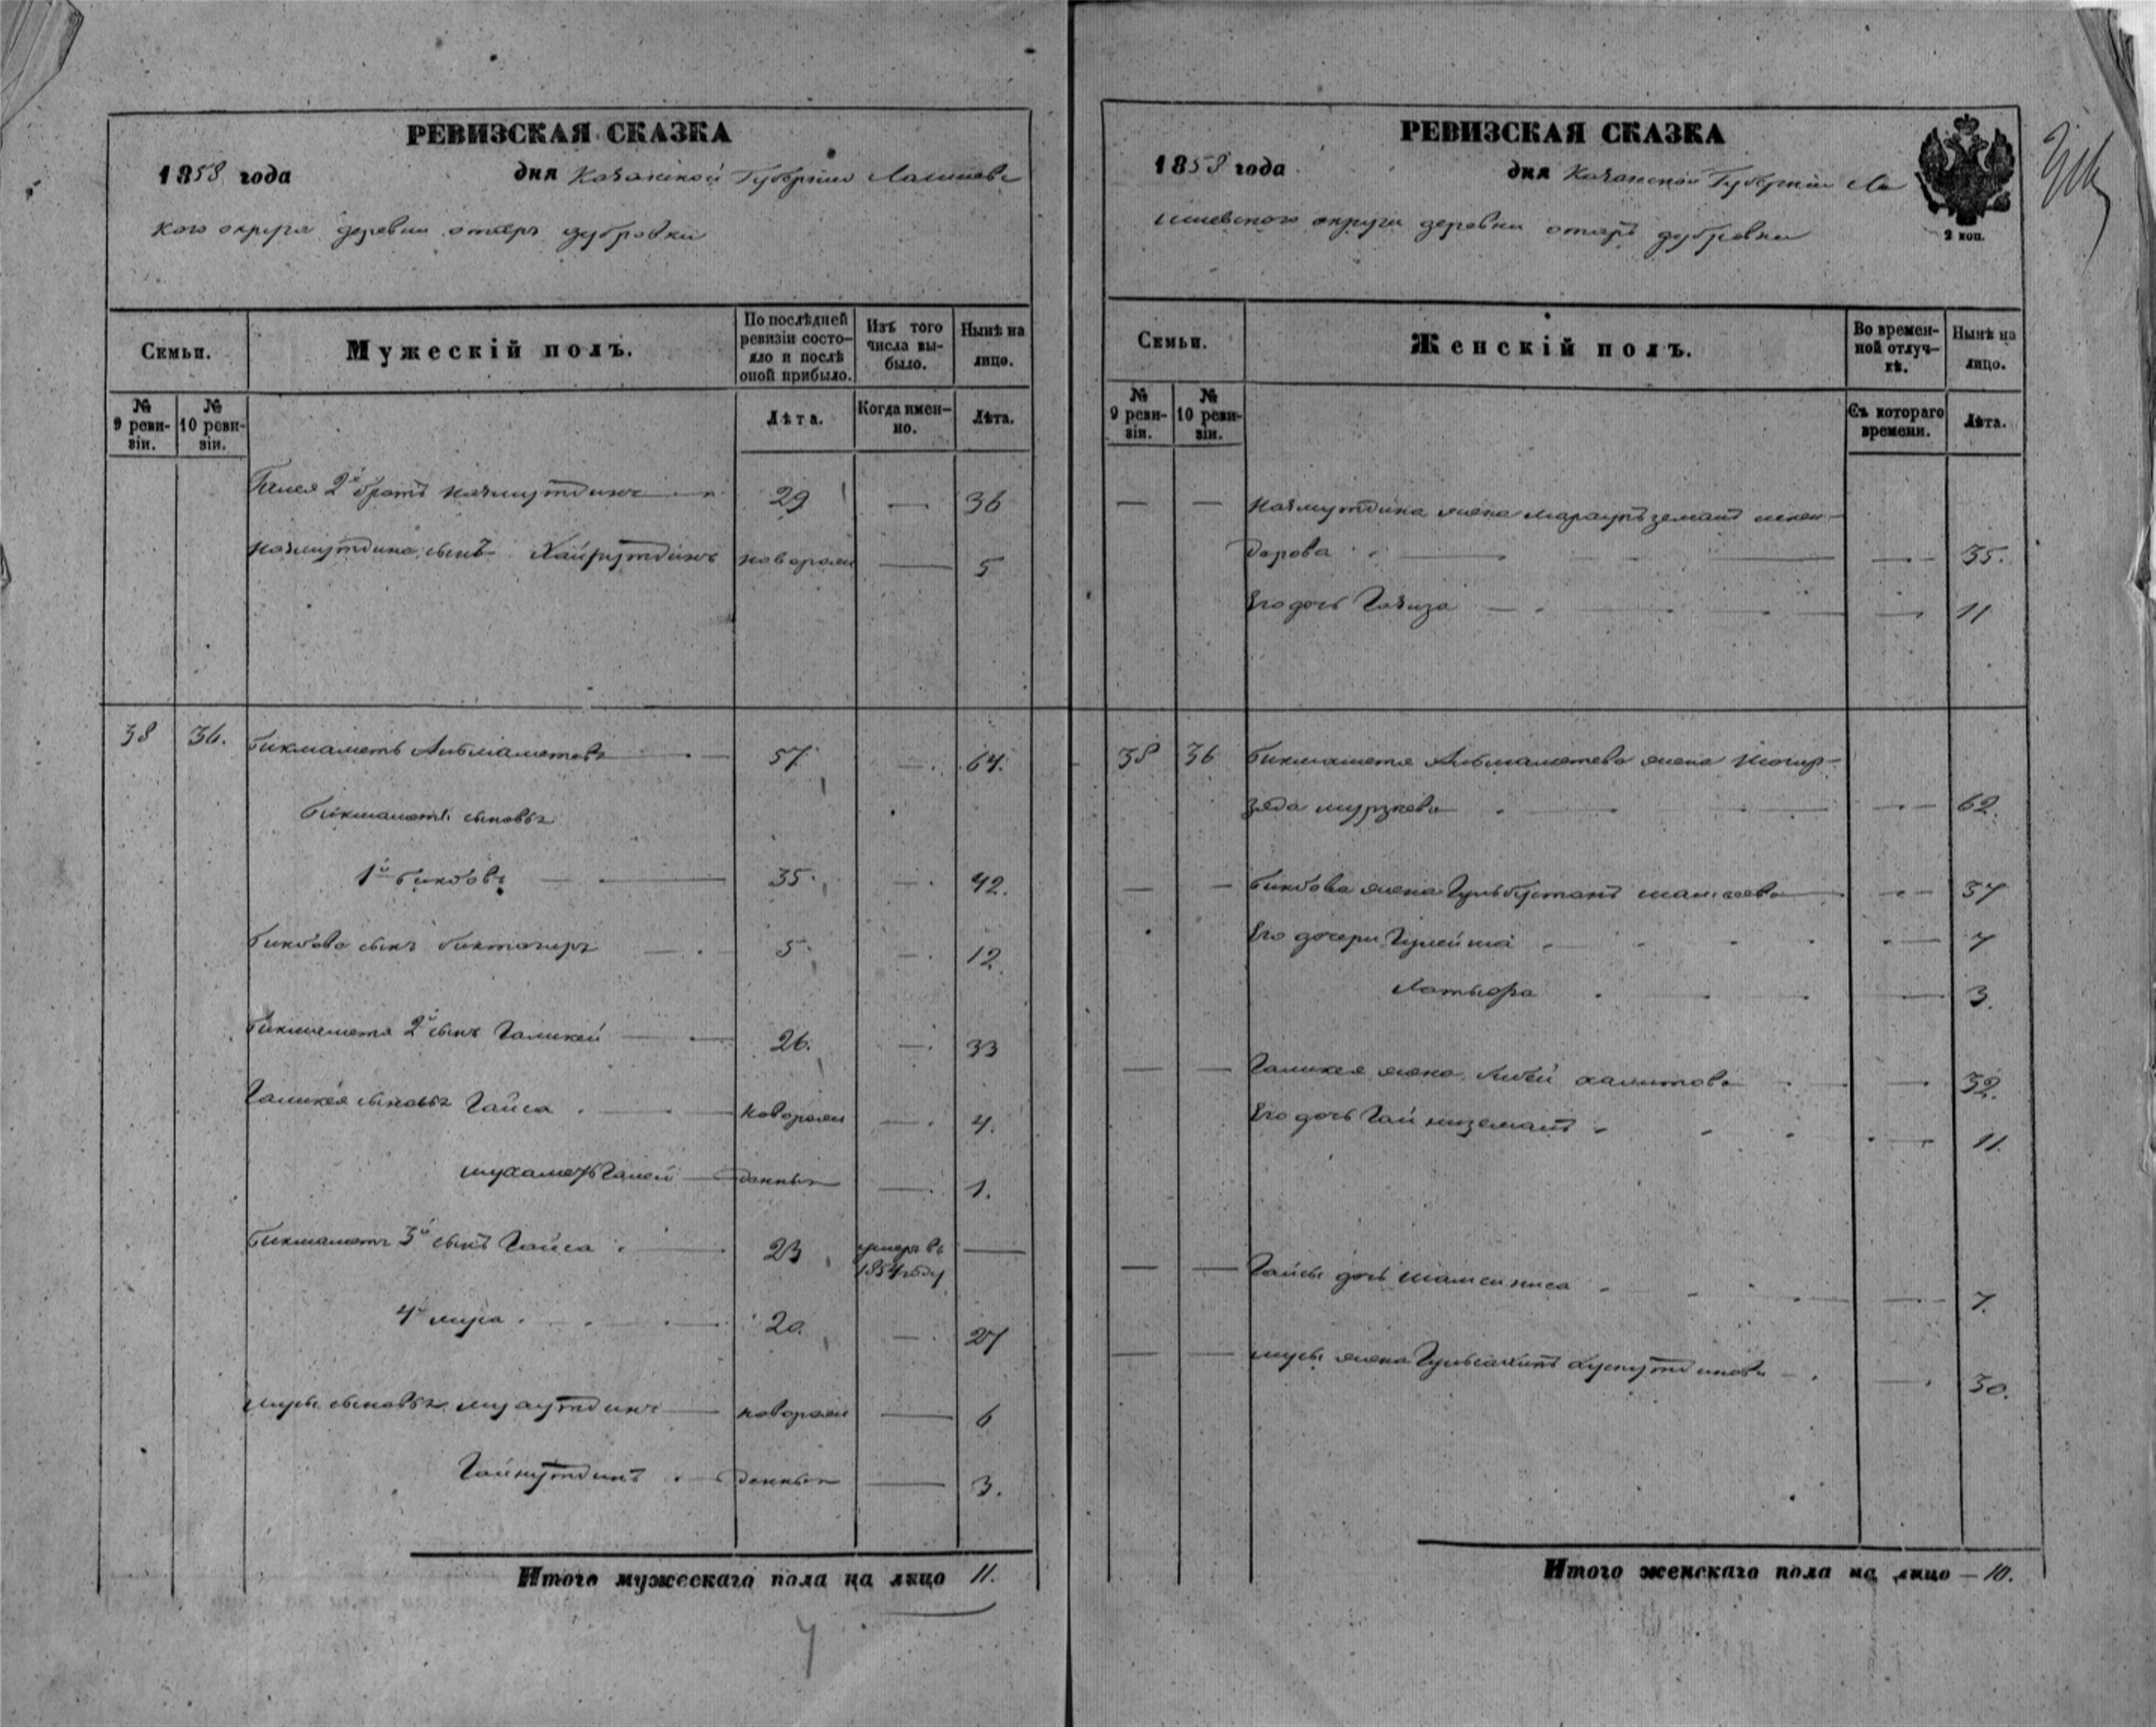 РЕВИЗСКАЯ СКАЗКА
1858 года дня Казанской Губернии Лаишевс
кого округа деревни отаръ дубровки
Семьи.
Мужескій полъ.
По послѣдней ревизіи состояло и послѣ оной прибыло.
Изъ того числа выбыло.
Нынѣ на лицо.
№ 9 ревизіи.
№ 10 ревизіи.
Лѣта.
Когда именно.
Лѣта.
Галея 2й братъ Назмутдинъ 29 — 36
Назмутдина сынъ Хайрутдинъ новорожд — 5
38 36. Бикмаметь Албмаметовъ 57 — 64.
Бикмамета сыновья
1й Бикбовъ 35 — 42.
Бикбова сынъ Биктагиръ 5 — 12
Бикмаметя 2й сынъ Галикей 26. — 33
Галикея сыновья Гайса новорожд — 4.
мухаметьГалей денныя — 1.
Бикмамета 3й сынъ Гайса 23 умеръ въ 1854 году —
4й муса 20. — 27
мусы сыновья муаутдинъ новорожд — 6
Гайнутдинъ денныя — 3.
Итого мужескаго пола на лицо 11.
РЕВИЗСКАЯ СКАЗКА
1858 года дня Казанской Губернии Ла
ишевского округа деревни отаръ дубровки
2 коп.
Семьи.
Женскій полъ.
Во временной отлучкѣ.
Нынѣ на лицо.
№ 9 ревизіи.
№ 10 ревизіи.
Съ котораго времени.
Лѣта.
— — Назмутдина жена искен-
дерова — 35.
Его дочь Газиза — 11
38 36 Бикмаметя Албмаметева жена
мурзкева — 62.
— — Бикбова жена Гульбустанъ — 37
Его дочери — 7
3.
— — Галикея жена халитова — 32.
Его дочь Гайниземалъ — 11.
— — Гайсы дочь Шамсиниса — 7.
— — мусы жена — 30.
Итого женскаго пола на лицо — 10.